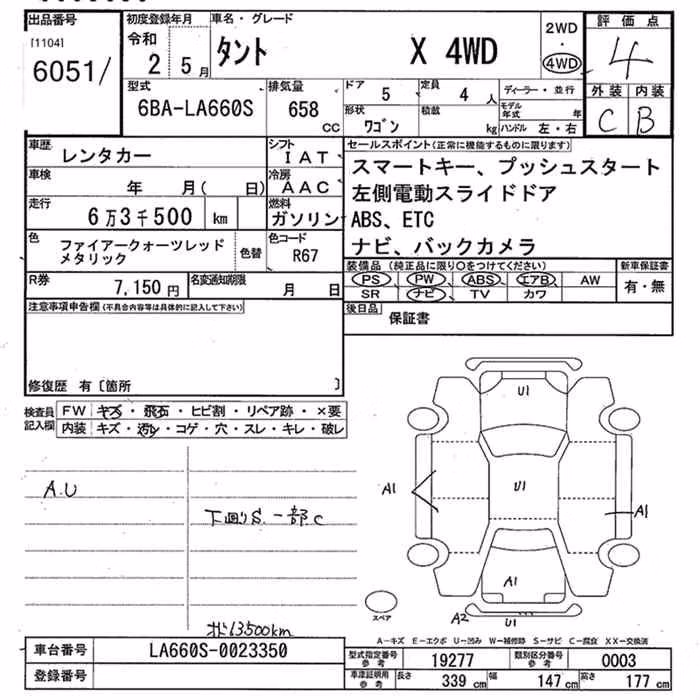 出品番号 初度登録年月 車名・グレード 2WD 評価点
[1104] 令和 タント X 4WD ・ 4
6051/ 2 5月 4WD
型式 排気量 ドア 5 定員 4人 ディーラー・並行 外装 内装
6BA-LA660S 658cc 形状 ワゴン 積載 kg モデル年式 年 C B
ハンドル 左・右
車歴 レンタカー シフト IAT セールスポイント(正常に機能するものに限ります)
車検 年 月(日) 冷房 AAC スマートキー、プッシュスタート
左側電動スライドドア
走行 6万3千500 km 燃料 ガソリン ABS、ETC
色 ファイアークォーツレッドメタリック 色替 色コード R67 ナビ、バックカメラ
R券 7,150円 名変通知期限 月 日 装備品(純正品に限り○をつけてください) 新車保証書
PS PW ABS エアB AW 有・無
SR ナビ TV カワ
注意事項申告欄(不具合内容等は具体的に記入して下さい) 後日品 保証書
修復歴 有〔箇所 〕
検査員記入欄 FW キズ・飛石・ヒビ割・リペア跡・×要
内装 キズ・汚レ・コゲ・穴・スレ・キレ・破レ
U1
A.U
A1 U1 A1
下廻りS.一部C
A1
スペア A2 U1
63500km
A-キズ E-エクボ U-凹み W-補修跡 S-サビ C-腐食 XX-交換済
車台番号 LA660S-0023350 型式指定番号参考 19277 類別区分番号参考 0003
登録番号 車庫証明用参考 長さ 339cm 幅 147cm 高さ 177cm